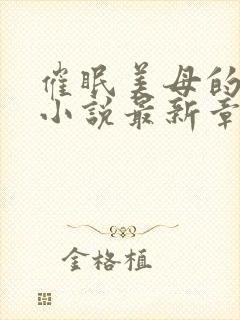 催眠美母的
小说最新章
金格植